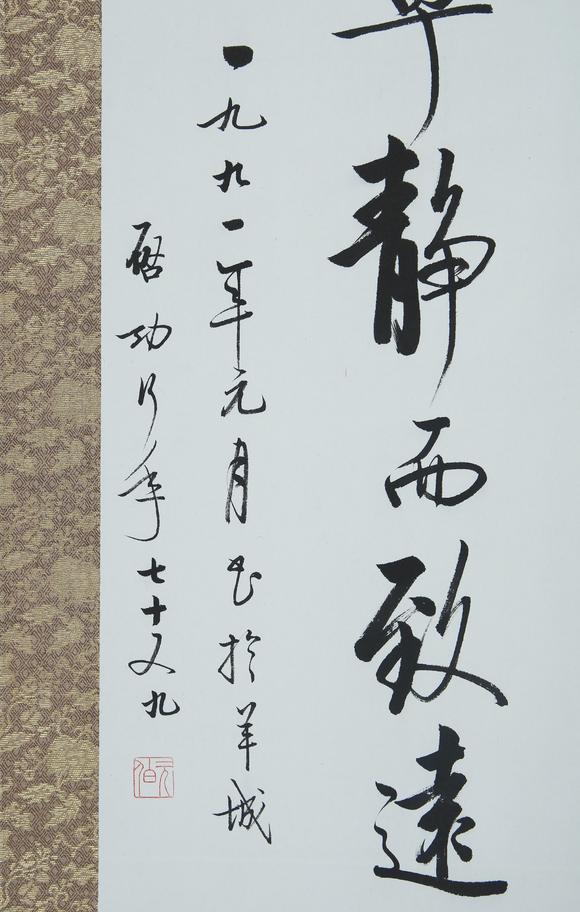 静而致遠
一九九一年元月书於羊城
啓功行年七十又九
元白